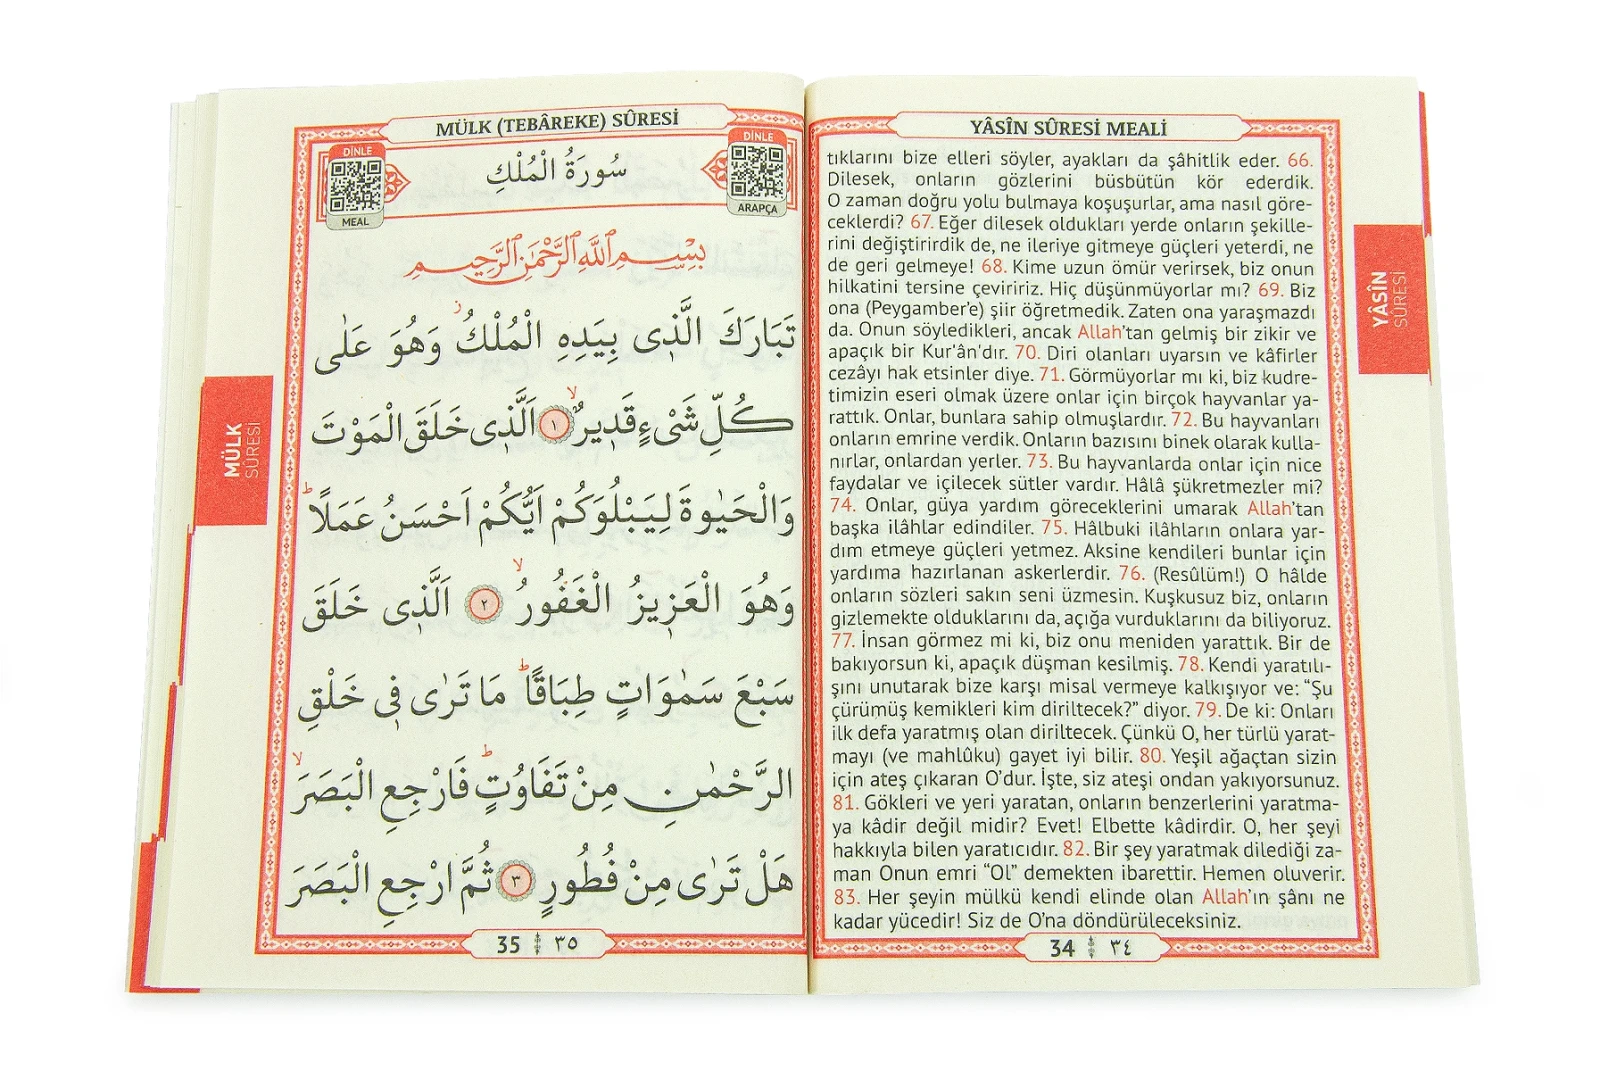 YÂSÎN SÛRESİ MEALİ
tıklarını bize elleri söyler, ayakları da şâhitlik eder. 66.
Dilesek, onların gözlerini büsbütün kör ederdik.
O zaman doğru yolu bulmaya koşuşurlar, ama nasıl göre-
ceklerdi? 67. Eğer dilesek oldukları yerde onların şekille-
rini değiştirirdik de, ne ileriye gitmeye güçleri yeterdi, ne
de geri gelmeye! 68. Kime uzun ömür verirsek, biz onun
hilkatini tersine çeviririz. Hiç düşünmüyorlar mı? 69. Biz
ona (Peygamber'e) şiir öğretmedik. Zaten ona yaraşmazdı
da. Onun söyledikleri, ancak Allah'tan gelmiş bir zikir ve
apaçık bir Kur'ân'dır. 70. Diri olanları uyarsın ve kâfirler
cezâyı hak etsinler diye. 71. Görmüyorlar mı ki, biz kudre-
timizin eseri olmak üzere onlar için birçok hayvanlar ya-
rattık. Onlar, bunlara sahip olmuşlardır. 72. Bu hayvanları
onların emrine verdik. Onların bazısını binek olarak kulla-
nırlar, onlardan yerler. 73. Bu hayvanlarda onlar için nice
faydalar ve içilecek sütler vardır. Hâlâ şükretmezler mi?
74. Onlar, güya yardım göreceklerini umarak Allah'tan
başka ilâhlar edindiler. 75. Hâlbuki ilâhların onlara yar-
dım etmeye güçleri yetmez. Aksine kendileri bunlar için
yardıma hazırlanan askerlerdir. 76. (Resûlüm!) O hâlde
onların sözleri sakın seni üzmesin. Kuşkusuz biz, onların
gizlemekte olduklarını da, açığa vurduklarını da biliyoruz.
77. İnsan görmez mi ki, biz onu meniden yarattık. Bir de
bakıyorsun ki, apaçık düşman kesilmiş. 78. Kendi yaratılı-
şını unutarak bize karşı misal vermeye kalkışıyor ve: “Şu
çürümüş kemikleri kim diriltecek?” diyor. 79. De ki: Onları
ilk defa yaratmış olan diriltecek. Çünkü O, her türlü yarat-
mayı (ve mahlûku) gayet iyi bilir. 80. Yeşil ağaçtan sizin
için ateş çıkaran O'dur. İşte, siz ateşi ondan yakıyorsunuz.
81. Gökleri ve yeri yaratan, onların benzerlerini yaratma-
ya kâdir değil midir? Evet! Elbette kâdirdir. O, her şeyi
hakkıyla bilen yaratıcıdır. 82. Bir şey yaratmak dilediği za-
man Onun emri “Ol” demekten ibarettir. Hemen oluverir.
83. Her şeyin mülkü kendi elinde olan Allah'ın şânı ne
kadar yücedir! Siz de O'na döndürüleceksiniz.
34 ٣٤
YÂSÎN
SÛRESİ
MÜLK (TEBÂREKE) SÛRESİ
DİNLE
ARAPÇA
سُورَةُ الْمُلْكِ
DİNLE
MEAL
بِسْمِ اللّٰهِ الرَّحْمٰنِ الرَّحِيمِ
تَبَارَكَ الَّذ۪ى بِيَدِهِ الْمُلْكُۘ وَهُوَ عَلٰى
كُلِّ شَىْءٍ قَد۪يرٌۙ ١ اَلَّذ۪ى خَلَقَ الْمَوْتَ
وَالْحَيٰوةَ لِيَبْلُوَكُمْ اَيُّكُمْ اَحْسَنُ عَمَلًاۜ
وَهُوَ الْعَز۪يزُ الْغَفُورُۙ ٢ اَلَّذ۪ى خَلَقَ
سَبْعَ سَمٰوَاتٍ طِبَاقًاۜ مَا تَرٰى ف۪ى خَلْقِ
الرَّحْمٰنِ مِنْ تَفَاوُتٍۜ فَارْجِعِ الْبَصَرَۙ
هَلْ تَرٰى مِنْ فُطُورٍ ٣ ثُمَّ ارْجِعِ الْبَصَرَ
35 ٣٥
MÜLK
SÛRESİ